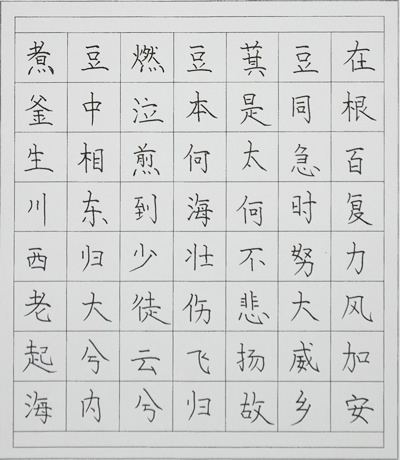 煮豆燃豆萁豆在
釜中泣本是同根
生相煎何太急百
川东到海何时复
西归少壮不努力
老大徒伤悲大风
起兮云飞扬威加
海内兮归故乡安